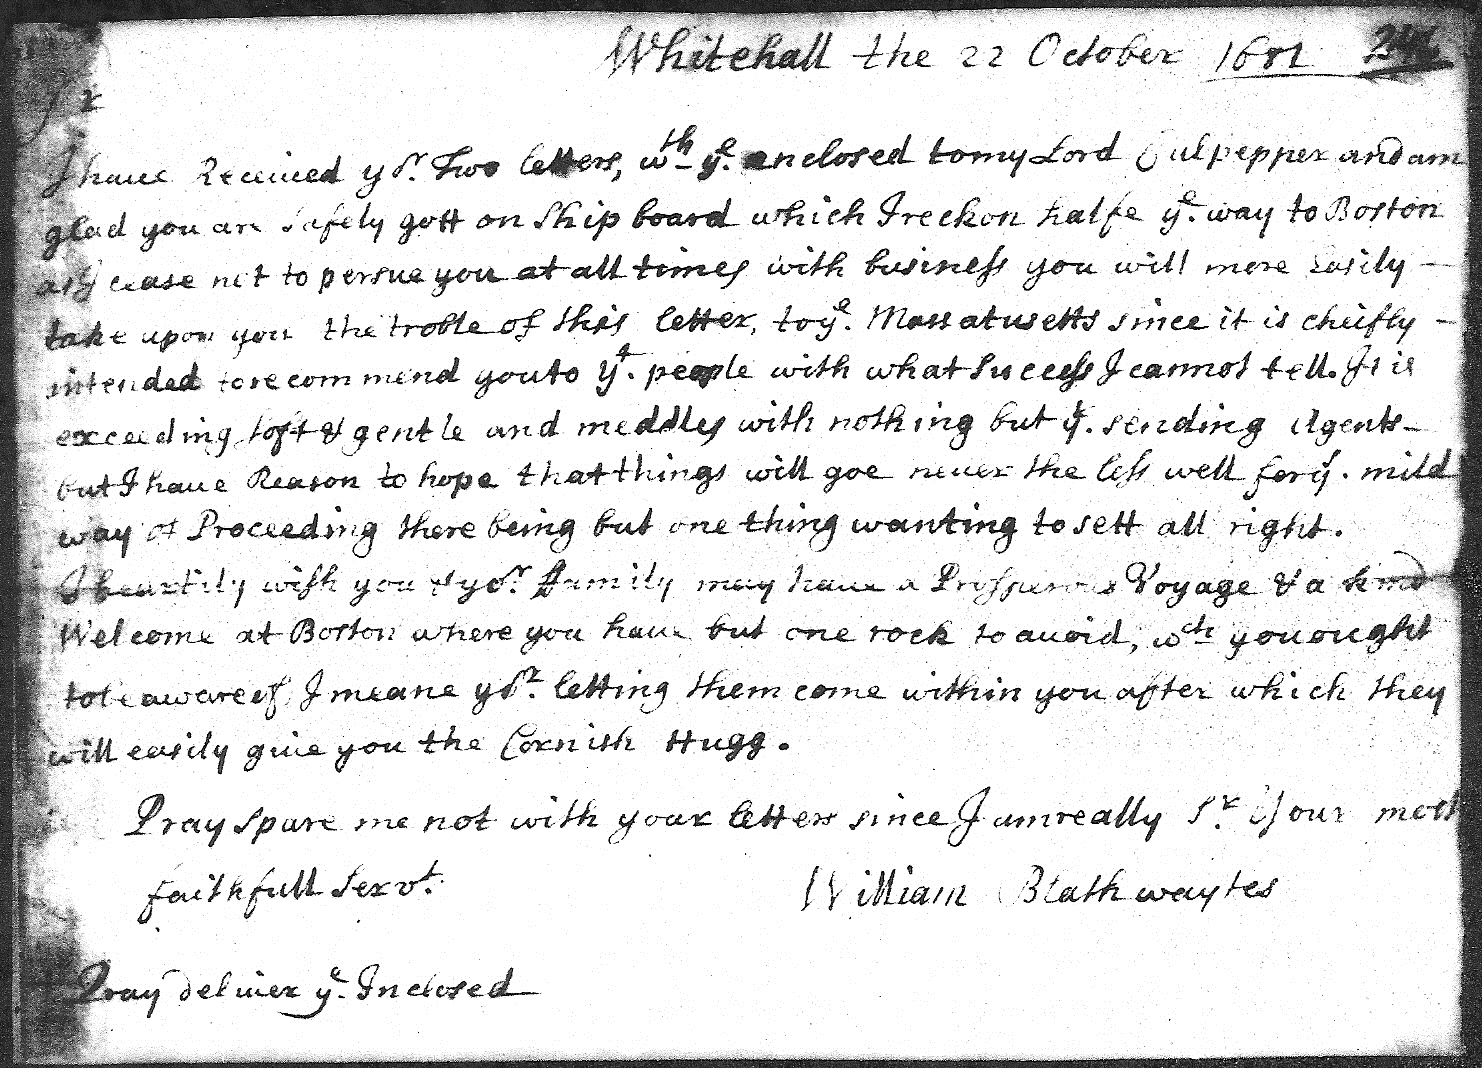 Whitehall the 22 October 1681
Sr
I haue Receiued yor. Two letters, wth ye. enclosed to my Lord Culpepper and am
glad you are safely gott on Shipboard which I reckon halfe ye. way to Boston
cease not to persue you at all times with business you will more easily —
take upon you the troble of this letter, to ye. Massatusetts since it is cheifly —
intended to recommend you to yt. people with what Success I cannot tell. It is
exceeding soft & gentle and meddles with nothing but ye. sending Agents —
but I haue Reason to hope that things will goe never the less well for ys. mild
way of Proceeding there being but one thing wanting to sett all right.
I heartily wish you & yor. Family may haue a Prosperous Voyage & a kind
Welcome at Boston where you haue but one rock to auoid, wch you ought
to be aware of I meane yor. letting them come within you after which they
will easily giue you the Cornish Hugg.
Pray spare me not with your letters since I am really Sr. Your most
faithfull Servt.
William Blathwaytes
Pray deliuer ye. Inclosed